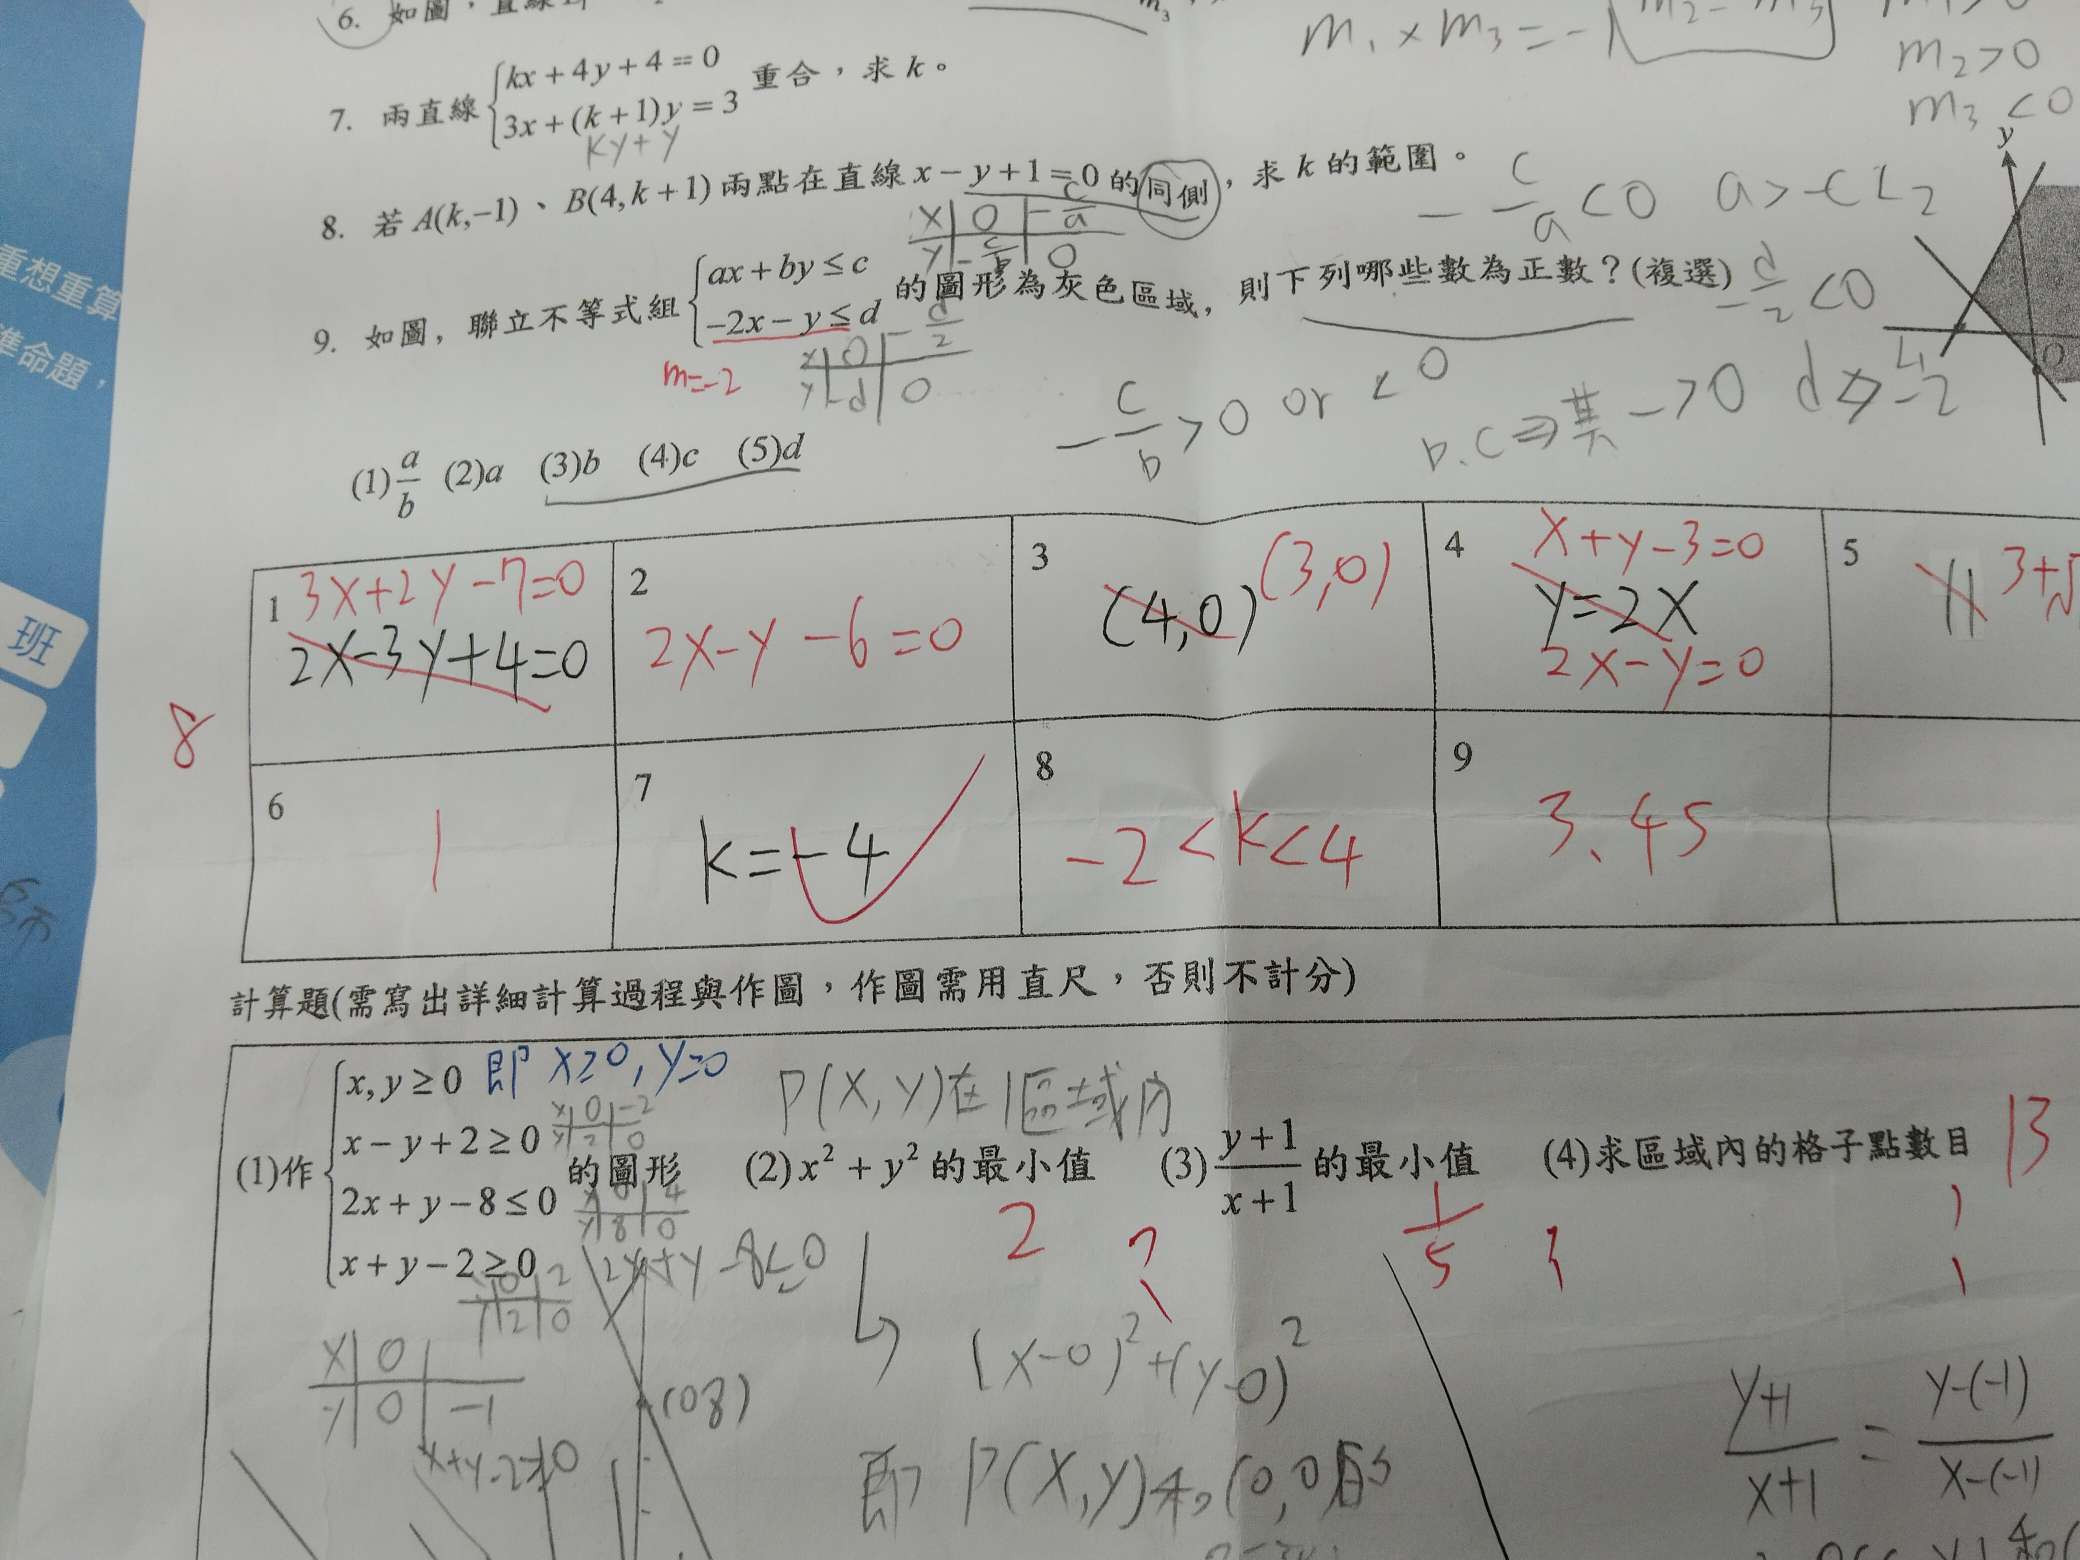 6. 如圖，直線
m₁ × m₃ = -1
m₂ > 0
m₃ < 0
7. 兩直線 { kx + 4y + 4 = 0
3x + (k + 1)y = 3 重合，求 k。
ky + y
8. 若 A(k, -1)、B(4, k + 1) 兩點在直線 x - y + 1 = 0 的同側，求 k 的範圍。
x 0 -c/a
0
-c/a < 0 a > -c L₂
9. 如圖，聯立不等式組 { ax + by ≤ c
-2x - y ≤ d 的圖形為灰色區域，則下列哪些數為正數？(複選)
-d/2 < 0
m=-2
x 0 -d/2
y -d 0
-c/b > 0 or < 0
y
O
L₁
(1) a/b (2) a (3) b (4) c (5) d
1 3x+2y-7=0
2x-3y+4=0
2 2x-y-6=0
3 (4,0) (3,0)
4 x+y-3=0
y=2x
2x-y=0
5 11 3+
8
6 1
7 k=-4
8 -2<k<4
9 3、45
計算題(需寫出詳細計算過程與作圖，作圖需用直尺，否則不計分)
(1)作 { x, y ≥ 0
x - y + 2 ≥ 0
2x + y - 8 ≤ 0
x + y - 2 ≥ 0 的圖形 (2) x² + y² 的最小值 (3) (y+1)/(x+1) 的最小值 (4)求區域內的格子點數目
即 x≥0, y≥0
P(x,y)在區域內
x 0 -2
y 2 0
x 0 4
y 8 0
0 2
y 2 0
2 1/5 13
2x+y-8≤0
x 0
y 0 -1
(0 8)
(x-0)²+(y-0)²
即 P(x,y)和(0,0)的
(y+1)/(x+1) = (y-(-1))/(x-(-1))
班
重想重算
準命題，
師